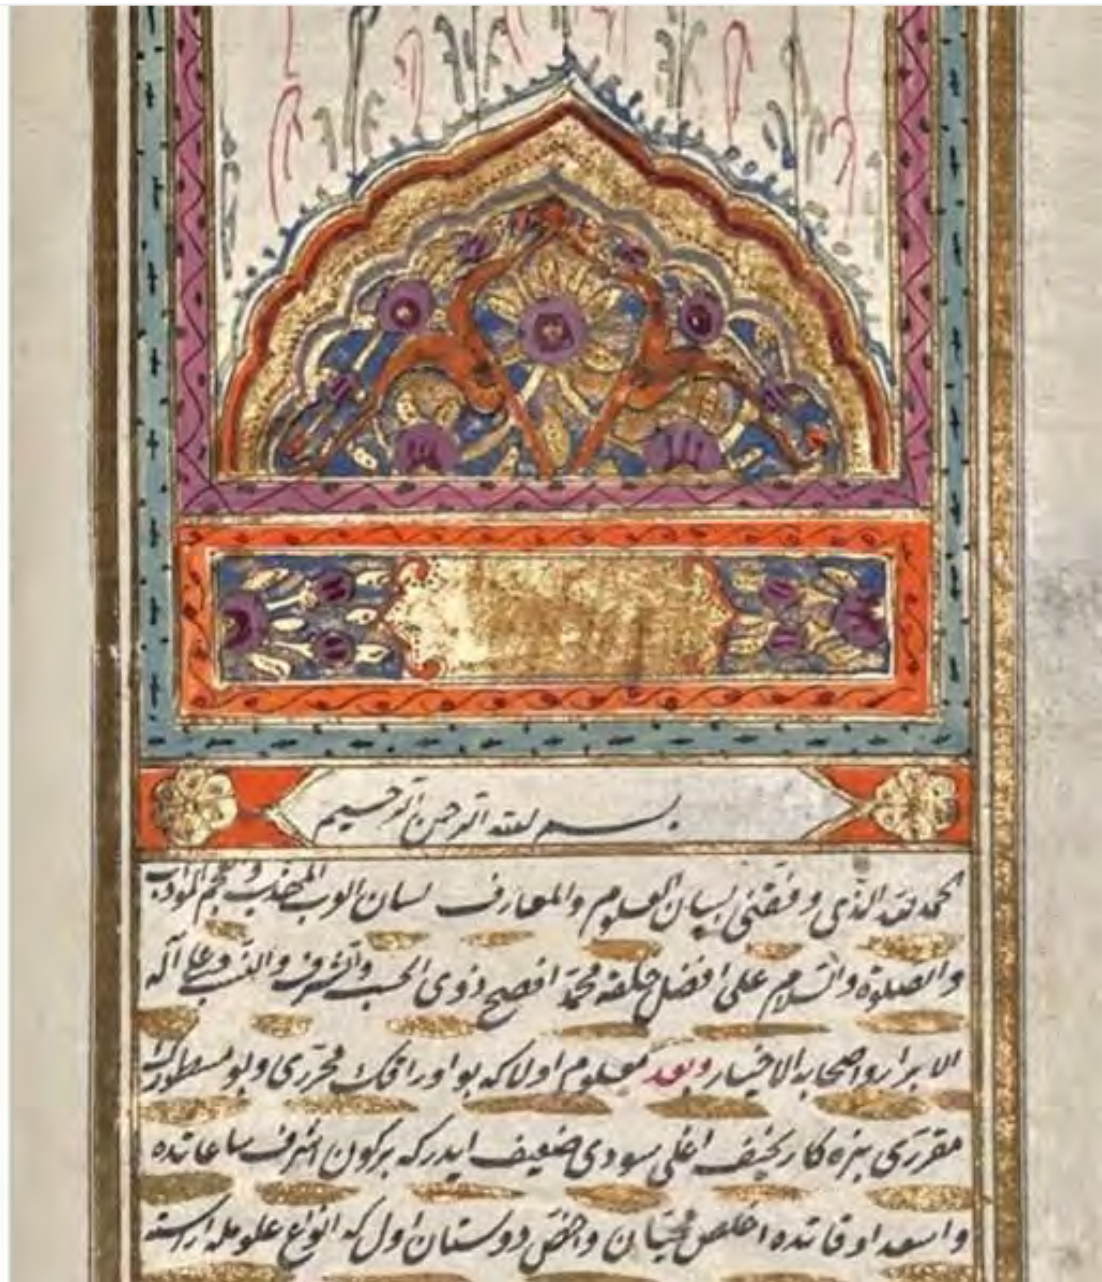 بسم الله الرحمن الرحيم
الحمد لله الذى وفقنى لبيان العلوم والمعارف لسان العرب المهذب و
والصلوة والسلام على افضل خلقه محمد افصح ذوى الحسب والشرف والنسب وعلى آله
الابرار واصحابه الاخيار وبعد معلوم اولا كه بو اوراقك محررى وبو مسطوراتك
مقررى بنده كار نحيف اعنى سودى ضعيف ايدر كه بركون اشرف ساعاتده
واسعد اوقاتده اخلص محبان واخص دوستان اول كه انواع علومله اراسته